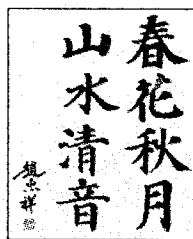 春花秋月
山水清音
赵忠祥